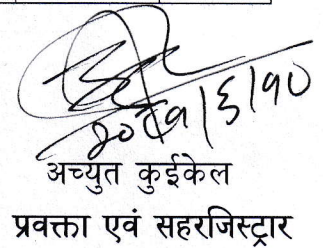 २०८१/६/१०
अच्युत कुईकेल
प्रवक्ता एवं सहरजिस्ट्रार